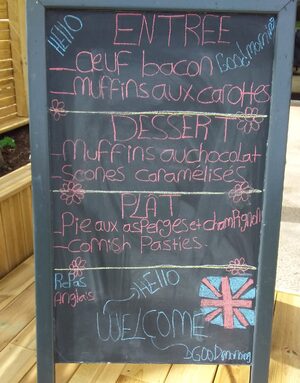 HELLO
ENTRÉE
Good morning
œuf bacon
Muffins aux carottes
DESSERT
Muffins au chocolat
Scones caramélisés
PLAT
Pie aux asperges et champignons
Cornish Pasties.
Relas
Anglais
HELLO
WELCOME
GOOD morning